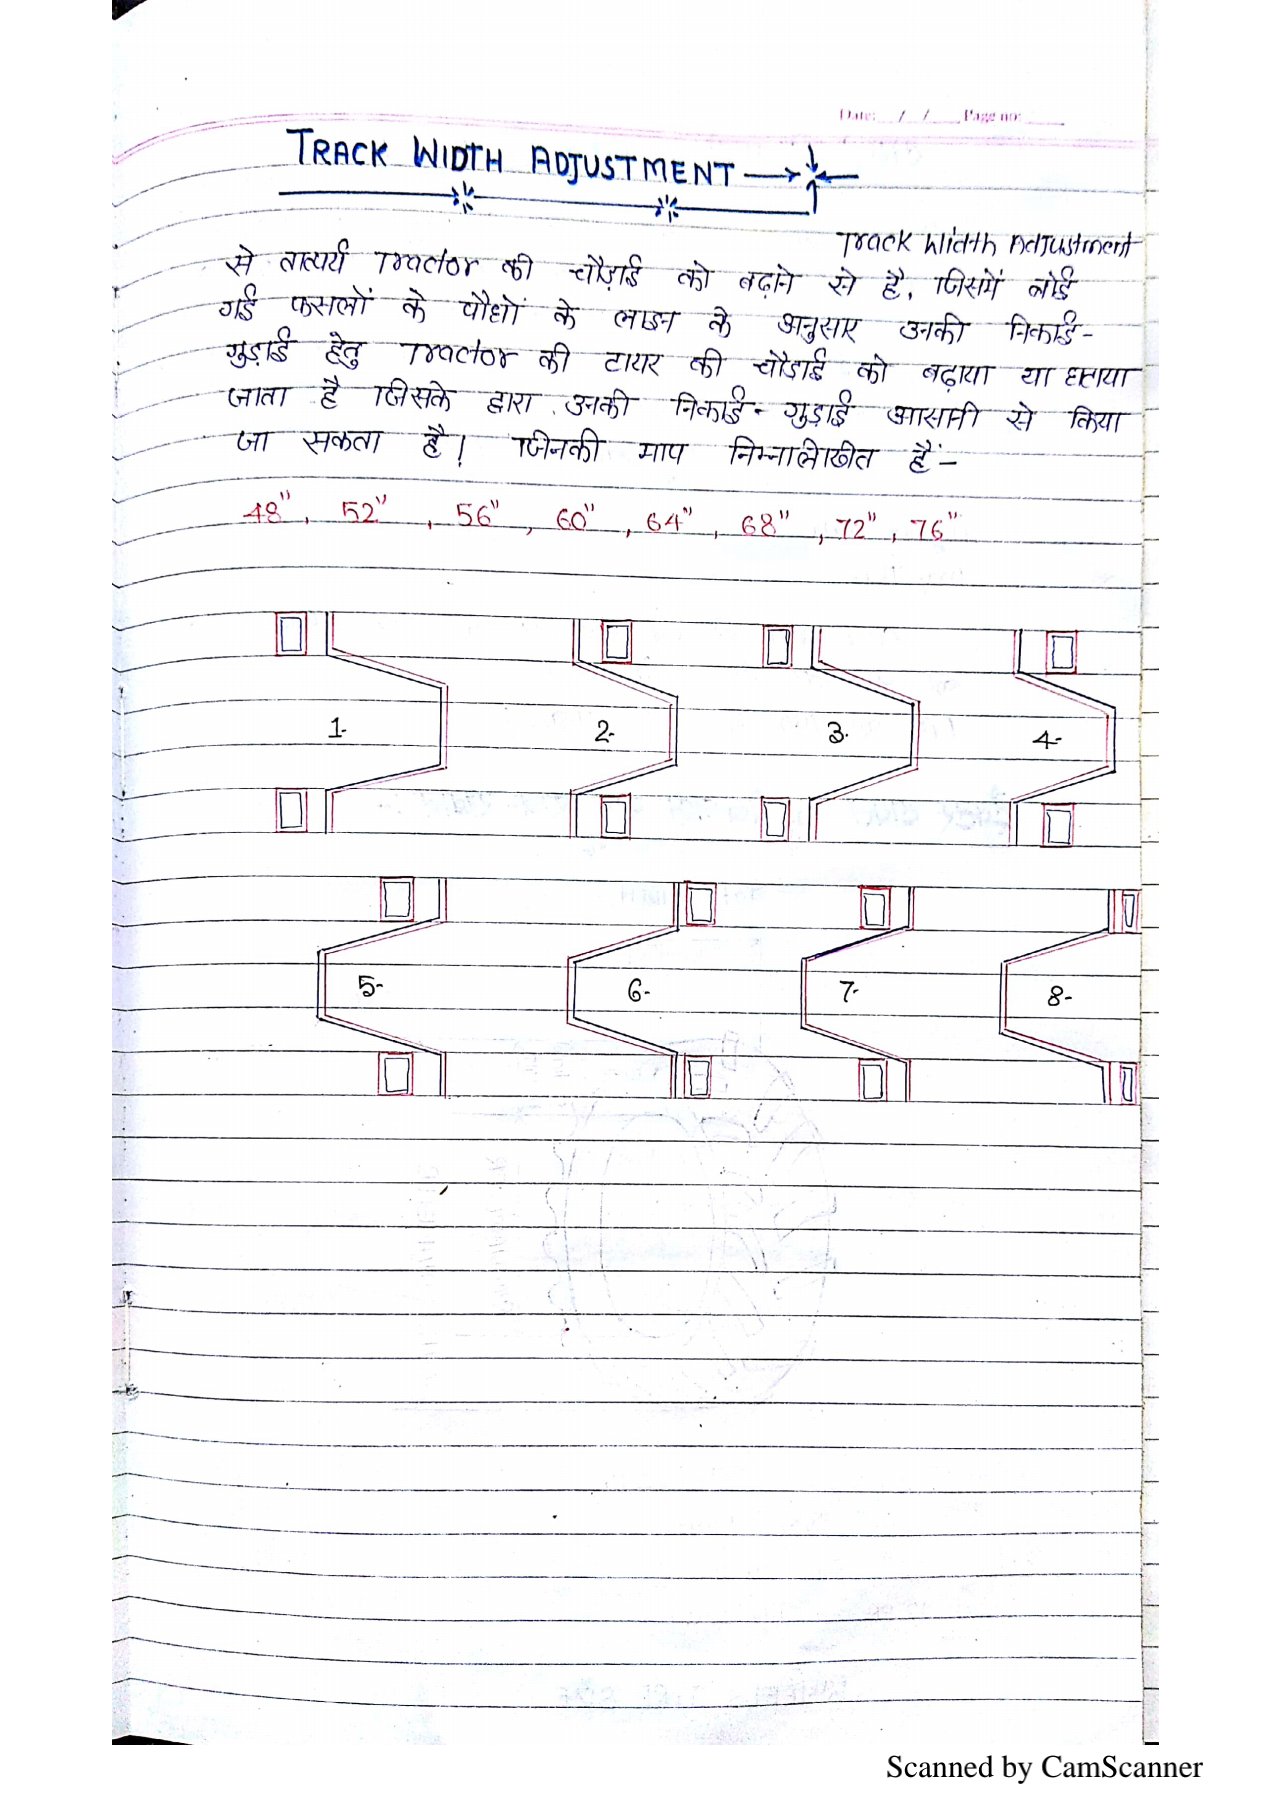 Date: / / Page no:
TRACK WIDTH ADJUSTMENT
Track Width Adjustment
से तात्पर्य Tractor की चौड़ाई को बढ़ाने से है, जिसमें बोई
गई फसलों के पौधों के लाइन के अनुसार उनकी निकाई-
गुड़ाई हेतु Tractor की टायर की चौड़ाई को बढ़ाया या घटाया
जाता है जिसके द्वारा उनकी निकाई- गुड़ाई आसानी से किया
जा सकता है! जिनकी माप निम्नलिखीत है:-
48", 52", 56", 60", 64", 68", 72", 76"
1. 2- 3. 4-
5- 6- 7- 8-
Scanned by CamScanner